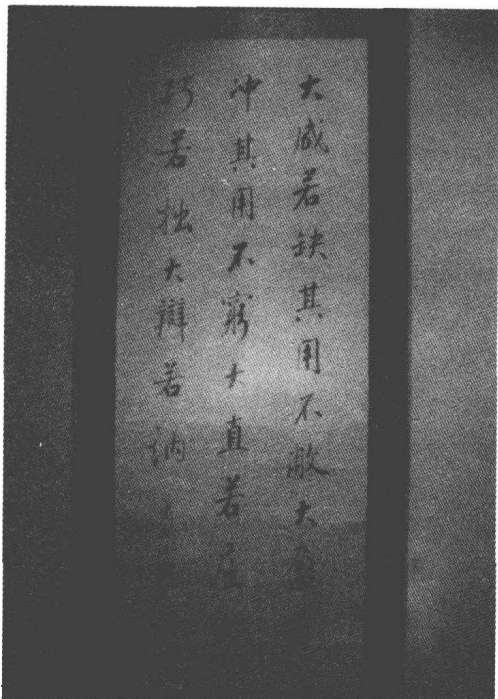 大成若缺其用不敝大盈
冲其用不窮大直若屈
巧若拙大辯若訥